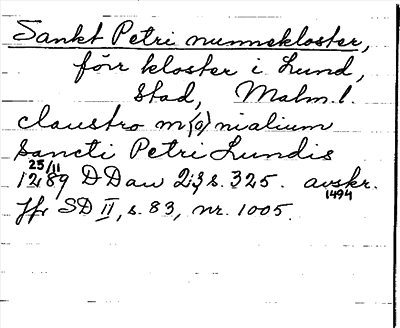 Sankt Petri nunnekloster,
förr kloster i Lund,
stad, Malm. l.
claustro m(o)nialium
Sancti Petri Lundis
25/11
1289 DDaw 2:3, s. 325. avskr.
1494
Jfr SD II, s. 83, nr. 1005.